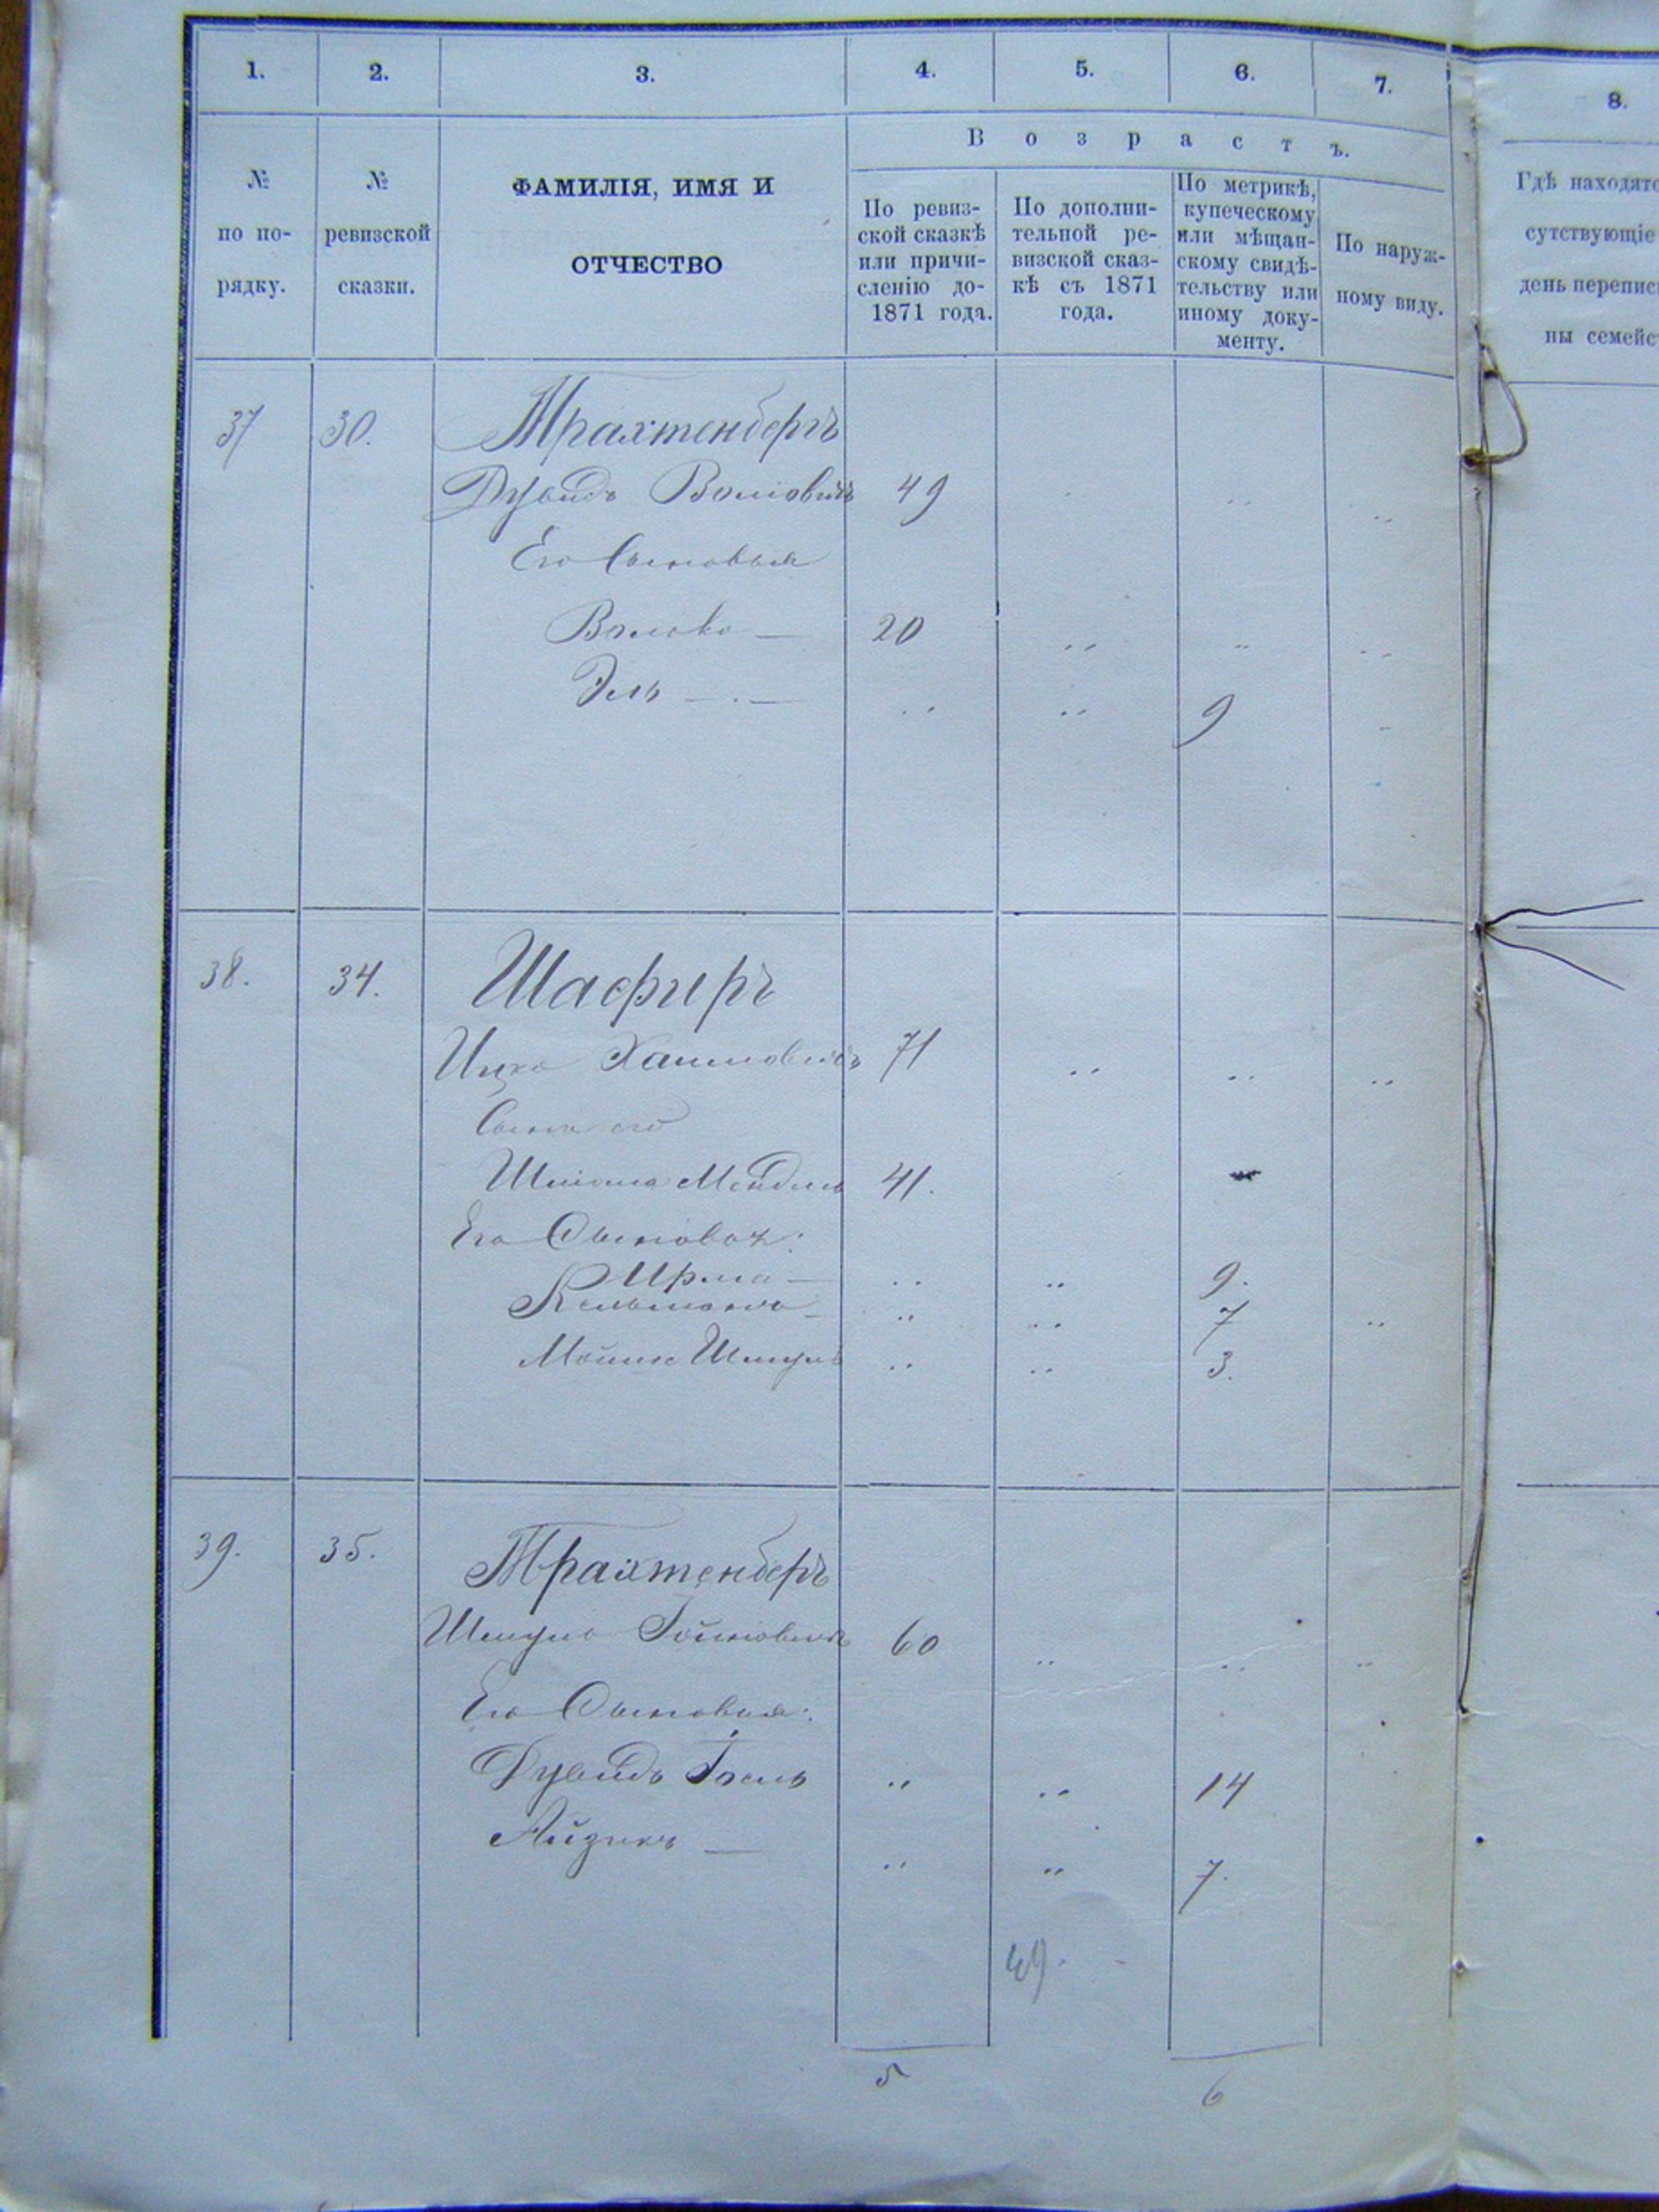 1. 2. 3. 4. 5. 6. 7. 8.
В о з р а с т ъ.
№ по по-
рядку.
№
ревизской
сказки.
ФАМИЛІЯ, ИМЯ И
ОТЧЕСТВО
По ревиз-
ской сказкѣ
или причи-
сленію до-
1871 года.
По дополни-
тельной ре-
визской сказ-
кѣ съ 1871
года.
По метрикѣ,
купеческому
или мѣщан-
скому свидѣ-
тельству или
иному доку-
менту.
По наруж-
ному виду.
Гдѣ находятс
сутствующіе
день перепис
ны семейс
37 30. Трахтенбергъ
Дувидъ Волковичъ 49
Его Сыновья
Волько — 20
Эль — . — 9
38. 34. Шафиръ
Ицко Хаимовичъ 71
Сынъ его
Шлiома Мендель 41.
Его Сыновья:
Ирма — 9.
Кельманъ — 7
Мойше Шмуль 3.
39. 35. Трахтенберъ
Шмуль 60
Его Сыновья:
Дувидъ Іосль 14
Айзикъ — 7.
49.
5 6